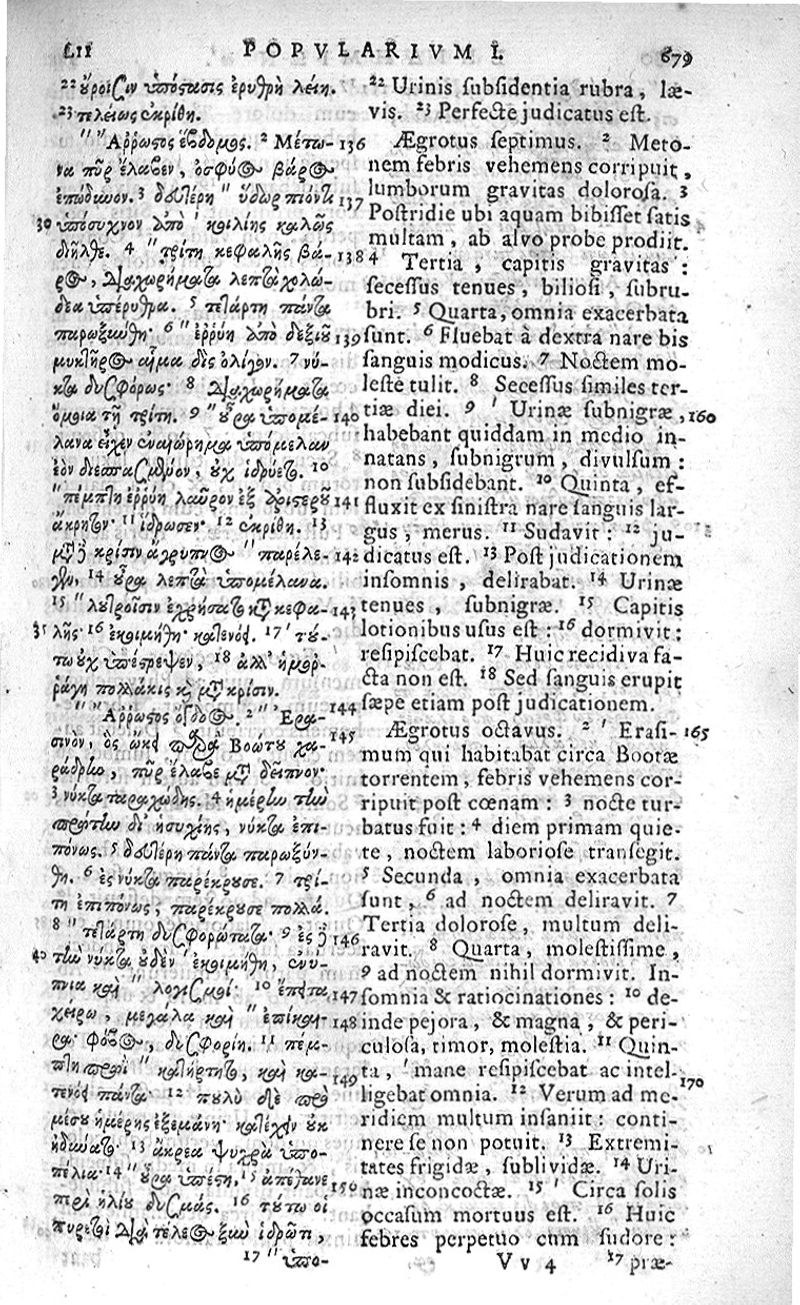 LII POPVLARIVM I. 679
22 οὔροισιν ὑπόστασις ἐρυθρὴ λείη.
23 τελείως ἐκρίθη.
"" Ἄρρωστος ἕβδομος. 2 Μέτω- 136
να πῦρ ἔλαβεν, ὀσφύος βάρος
ἐπώδυνον. 3 δευτέρῃ " ὕδωρ πιόντι 137
30 ὑπόσυχνον ἀπὸ ' κοιλίης καλῶς
διῆλθε. 4 " τρίτῃ κεφαλῆς βά- 138
ρος, διαχωρήματα λεπτὰ χολώ-
δεα ὑπέρυθρα. 5 τετάρτῃ πάντα
παρωξύνθη· 6 " ἐρρύη ἀπὸ δεξιοῦ 139
μυκτῆρος αἷμα δὶς ὀλίγον. 7 νύ-
κτα δυσφόρως· 8 διαχωρήματα
ὅμοια τῇ τρίτῃ. 9 " οὖρα ὑπομέ- 140
λανα εἶχεν ἐναιώρημα ὑπόμελαν
ἐὸν διεσπασμένον, οὐχ ἱδρύετο. 10
" πέμπτῃ ἐρρύη λαῦρον ἐξ ἀριστεροῦ 141
ἄκρητον· 11 ἵδρωσεν· 12 ἐκρίθη. 13
μετὰ δὲ κρίσιν ἄγρυπνος " παρέλε- 142
γεν, 14 οὖρα λεπτὰ ὑπομέλανα.
15 " λουτροῖσιν ἐχρήσατο κατὰ κεφα- 143
35 λῆς· 16 ἐκοιμήθη· κατενόει. 17 ' τού-
τῳ οὐχ ὑπέστρεψεν, 18 ἀλλ' ἡμορ-
ράγη πολλάκις καὶ μετὰ κρίσιν.
"" Ἄρρωστος ὄγδοος. 2 " Ἐρα- 144
σινὸν, ὃς ᾤκει παρὰ Βοώτου χα- 145
ράδρην, πῦρ ἔλαβε μετὰ δεῖπνον·
3 νύκτα ταραχώδης. 4 ἡμέρην τὴν
πρώτην δι' ἡσυχίης, νύκτα ἐπι-
πόνως. 5 δευτέρῃ πάντα παρωξύν-
θη. 6 ἐς νύκτα παρέκρουσε. 7 τρί-
τῃ ἐπιπόνως, παρέκρουσε πολλά.
8 " τετάρτῃ δυσφορώτατα· 9 ἐς δὲ 146
40 τὴν νύκτα οὐδὲν ' ἐκοιμήθη, ἐνύ-
πνια καὶ " λογισμοί· 10 ἔπειτα 147
χείρω, μεγάλα καὶ " ἐπίκαι- 148
ρα· φόβος, δυσφορίη. 11 πέμ-
πτῃ πρωῒ " κατήρτητο, καὶ κα- 149
τενόει πάντα· 12 πουλὺ δὲ πρὸ
μέσου ἡμέρης ἐξεμάνη· κατέχειν οὐκ
ἠδύνατο· 13 ἄκρεα ψυχρὰ ὑπο-
πέλια· 14 " οὖρα ὑπέστη, 15 ἀπέθανε 150
περὶ ἡλίου δυσμάς. 16 τούτῳ οἱ
πυρετοὶ διὰ τέλεος ξὺν ἱδρῶτι,
17 " ὑπο-
22 Urinis subsidentia rubra, læ-
vis. 23 Perfecte judicatus est.
Ægrotus septimus. 2 Meto-
nem febris vehemens corripuit,
lumborum gravitas dolorosa. 3
Postridie ubi aquam bibisset satis
multam, ab alvo probe prodiit.
4 Tertia, capitis gravitas:
secessus tenues, biliosi, subru-
bri. 5 Quarta, omnia exacerbata
sunt. 6 Fluebat à dextra nare bis
sanguis modicus. 7 Noctem mo-
leste tulit. 8 Secessus similes ter-
tiæ diei. 9 ' Urinæ subnigræ, 160
habebant quiddam in medio in-
natans, subnigrum, divulsum:
non subsidebant. 10 Quinta, ef-
fluxit ex sinistra nare sanguis lar-
gus, merus. 11 Sudavit: 12 ju-
dicatus est. 13 Post judicationem
insomnis, delirabat. 14 Urinæ
tenues, subnigræ. 15 Capitis
lotionibus usus est: 16 dormivit:
resipiscebat. 17 Huic recidiva fa-
cta non est. 18 Sed sanguis erupit
sæpe etiam post judicationem.
Ægrotus octavus. 2 ' Erasi- 165
mum qui habitabat circa Bootæ
torrentem, febris vehemens cor-
ripuit post cœnam: 3 nocte tur-
batus fuit: 4 diem primam quie-
te, noctem laboriose transegit.
5 Secunda, omnia exacerbata
sunt, 6 ad noctem deliravit. 7
Tertia dolorose, multum deli-
ravit. 8 Quarta, molestissime,
9 ad noctem nihil dormivit. In-
somnia & ratiocinationes: 10 de-
inde pejora, & magna, & peri-
culosa, timor, molestia. 11 Quin-
ta, ' mane resipiscebat ac intel-
ligebat omnia. 12 Verum ad me- 170
ridiem multum insaniit: conti-
nere se non potuit. 13 Extremi-
tates frigidæ, sublividæ. 14 Uri-
næ inconcoctæ. 15 ' Circa solis
occasum mortuus est. 16 Huic
febres perpetuo cum sudore:
V v 4 17 præ-